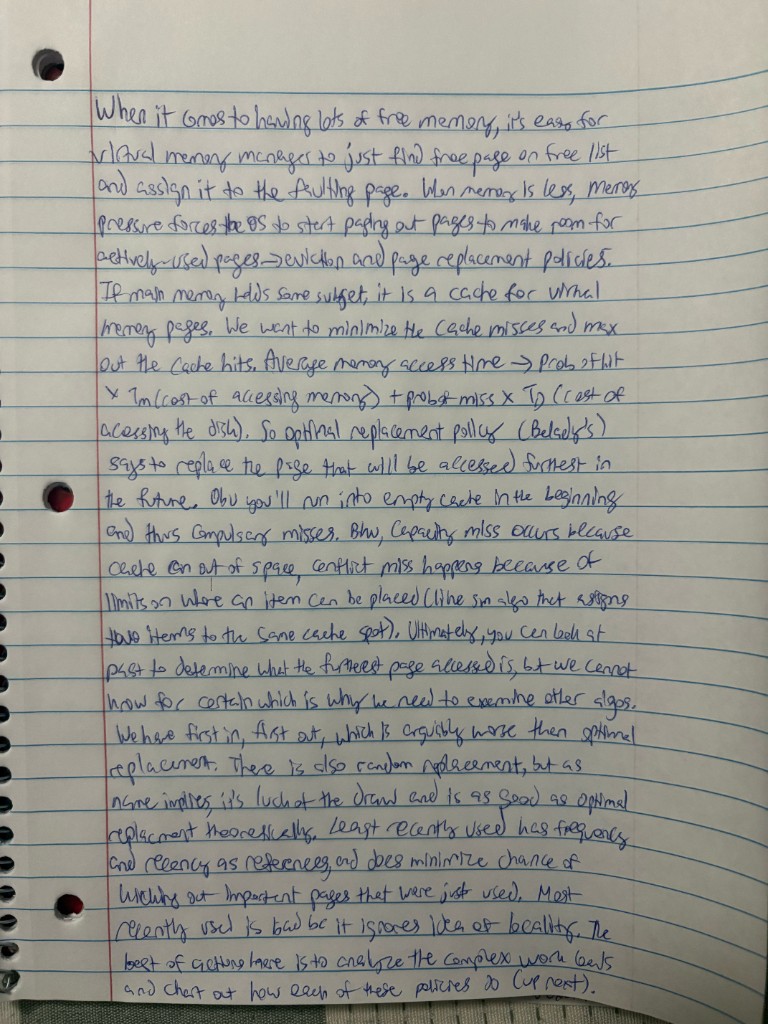 When it comes to having lots of free memory, it's easy for
virtual memory manager to just find free page on free list
and assign it to the faulting page. When memory is less, memory
pressure forces the OS to start paging out pages to make room for
actively-used pages → eviction and page replacement policies.
If main memory holds some subset, it is a cache for virtual
memory pages. We want to minimize the cache misses and max
out the cache hits. Average memory access time → prob of hit
× Tm (cost of accessing memory) + prob of miss × TD (cost of
acessing the disk). So optimal replacement policy (Belady's)
says to replace the page that will be accessed furthest in
the future. Obv you'll run into empty cache in the beginning
and thus compulsary misses. Btw, Capacity miss occurs because
cache ran out of space, conflict miss happens because of
limits on where an item can be placed (like sm algo that assigns
two items to the same cache spot). Ultimately, you can look at
past to determine what the furthest page accessed is, but we cannot
know for certain which is why we need to examine other algos.
We have first in, first out, which is arguably worse than optimal
replacement. There is also random replacement, but as
name implies, it's luck of the draw and is as good as optimal
replacment theoretically. Least recently used has frequency
and recency as references, and does minimize chance of
kicking out important pages that were just used. Most
recently used is bad bc it ignores idea of locality. The
best of actions here is to analyze the complex work loads
and chart out how each of these policies do (up next).